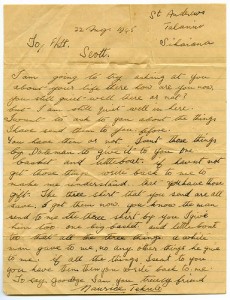 St Andrews
22 Aug. 1945
Sikaiana
To, Lt.
Scott.
I am going to beg asking at you
about your life there how are you now,
you still quiet well there or not?
I am still quiet well in here.
I want to ask to you about the things
I have send them to you before.
You have them or not. I sent those things
by Dobsman to give it to you one
basket and letterboat. If havent not
get those things write back to me to
make me understand. But perhaps have
got. The three shirt that you send are all
sizes. I got them now, you know the man
send to me the three shirt by you I give
him too one big basket and letterboat
to that all the three things is which
man gave it me, no any other things he give
to me. If all the things I want to you
you have them then you write back to me.
To say goodbye I am you friendly friend
Maurice